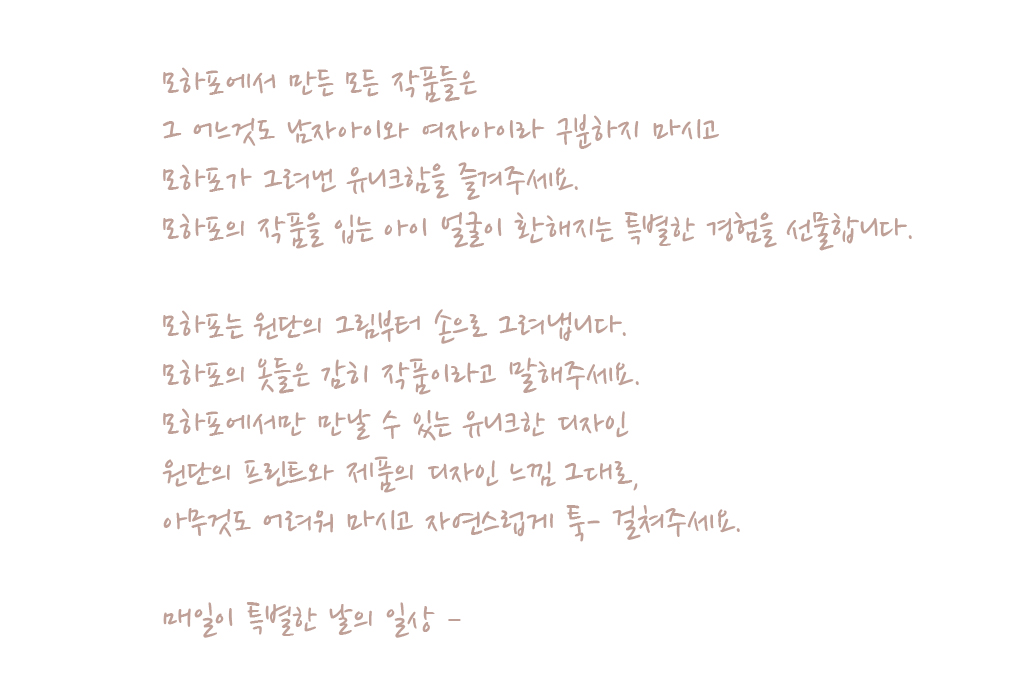 모하포에서 만든 모든 작품들은
그 어느것도 남자아이와 여자아이라 구분하지 마시고
모하포가 그려넨 유니크함을 즐겨주세요.
모하포의 작품을 입는 아이 얼굴이 환해지는 특별한 경험을 선물합니다.
모하포는 원단의 그림부터 손으로 그려냅니다.
모하포의 옷들은 감히 작품이라고 말해주세요.
모하포에서만 만날 수 있는 유니크한 디자인
원단의 프린트와 제품의 디자인 느낌 그대로,
아무것도 어려워 마시고 자연스럽게 툭- 걸쳐주세요.
매일이 특별한 날의 일상 -